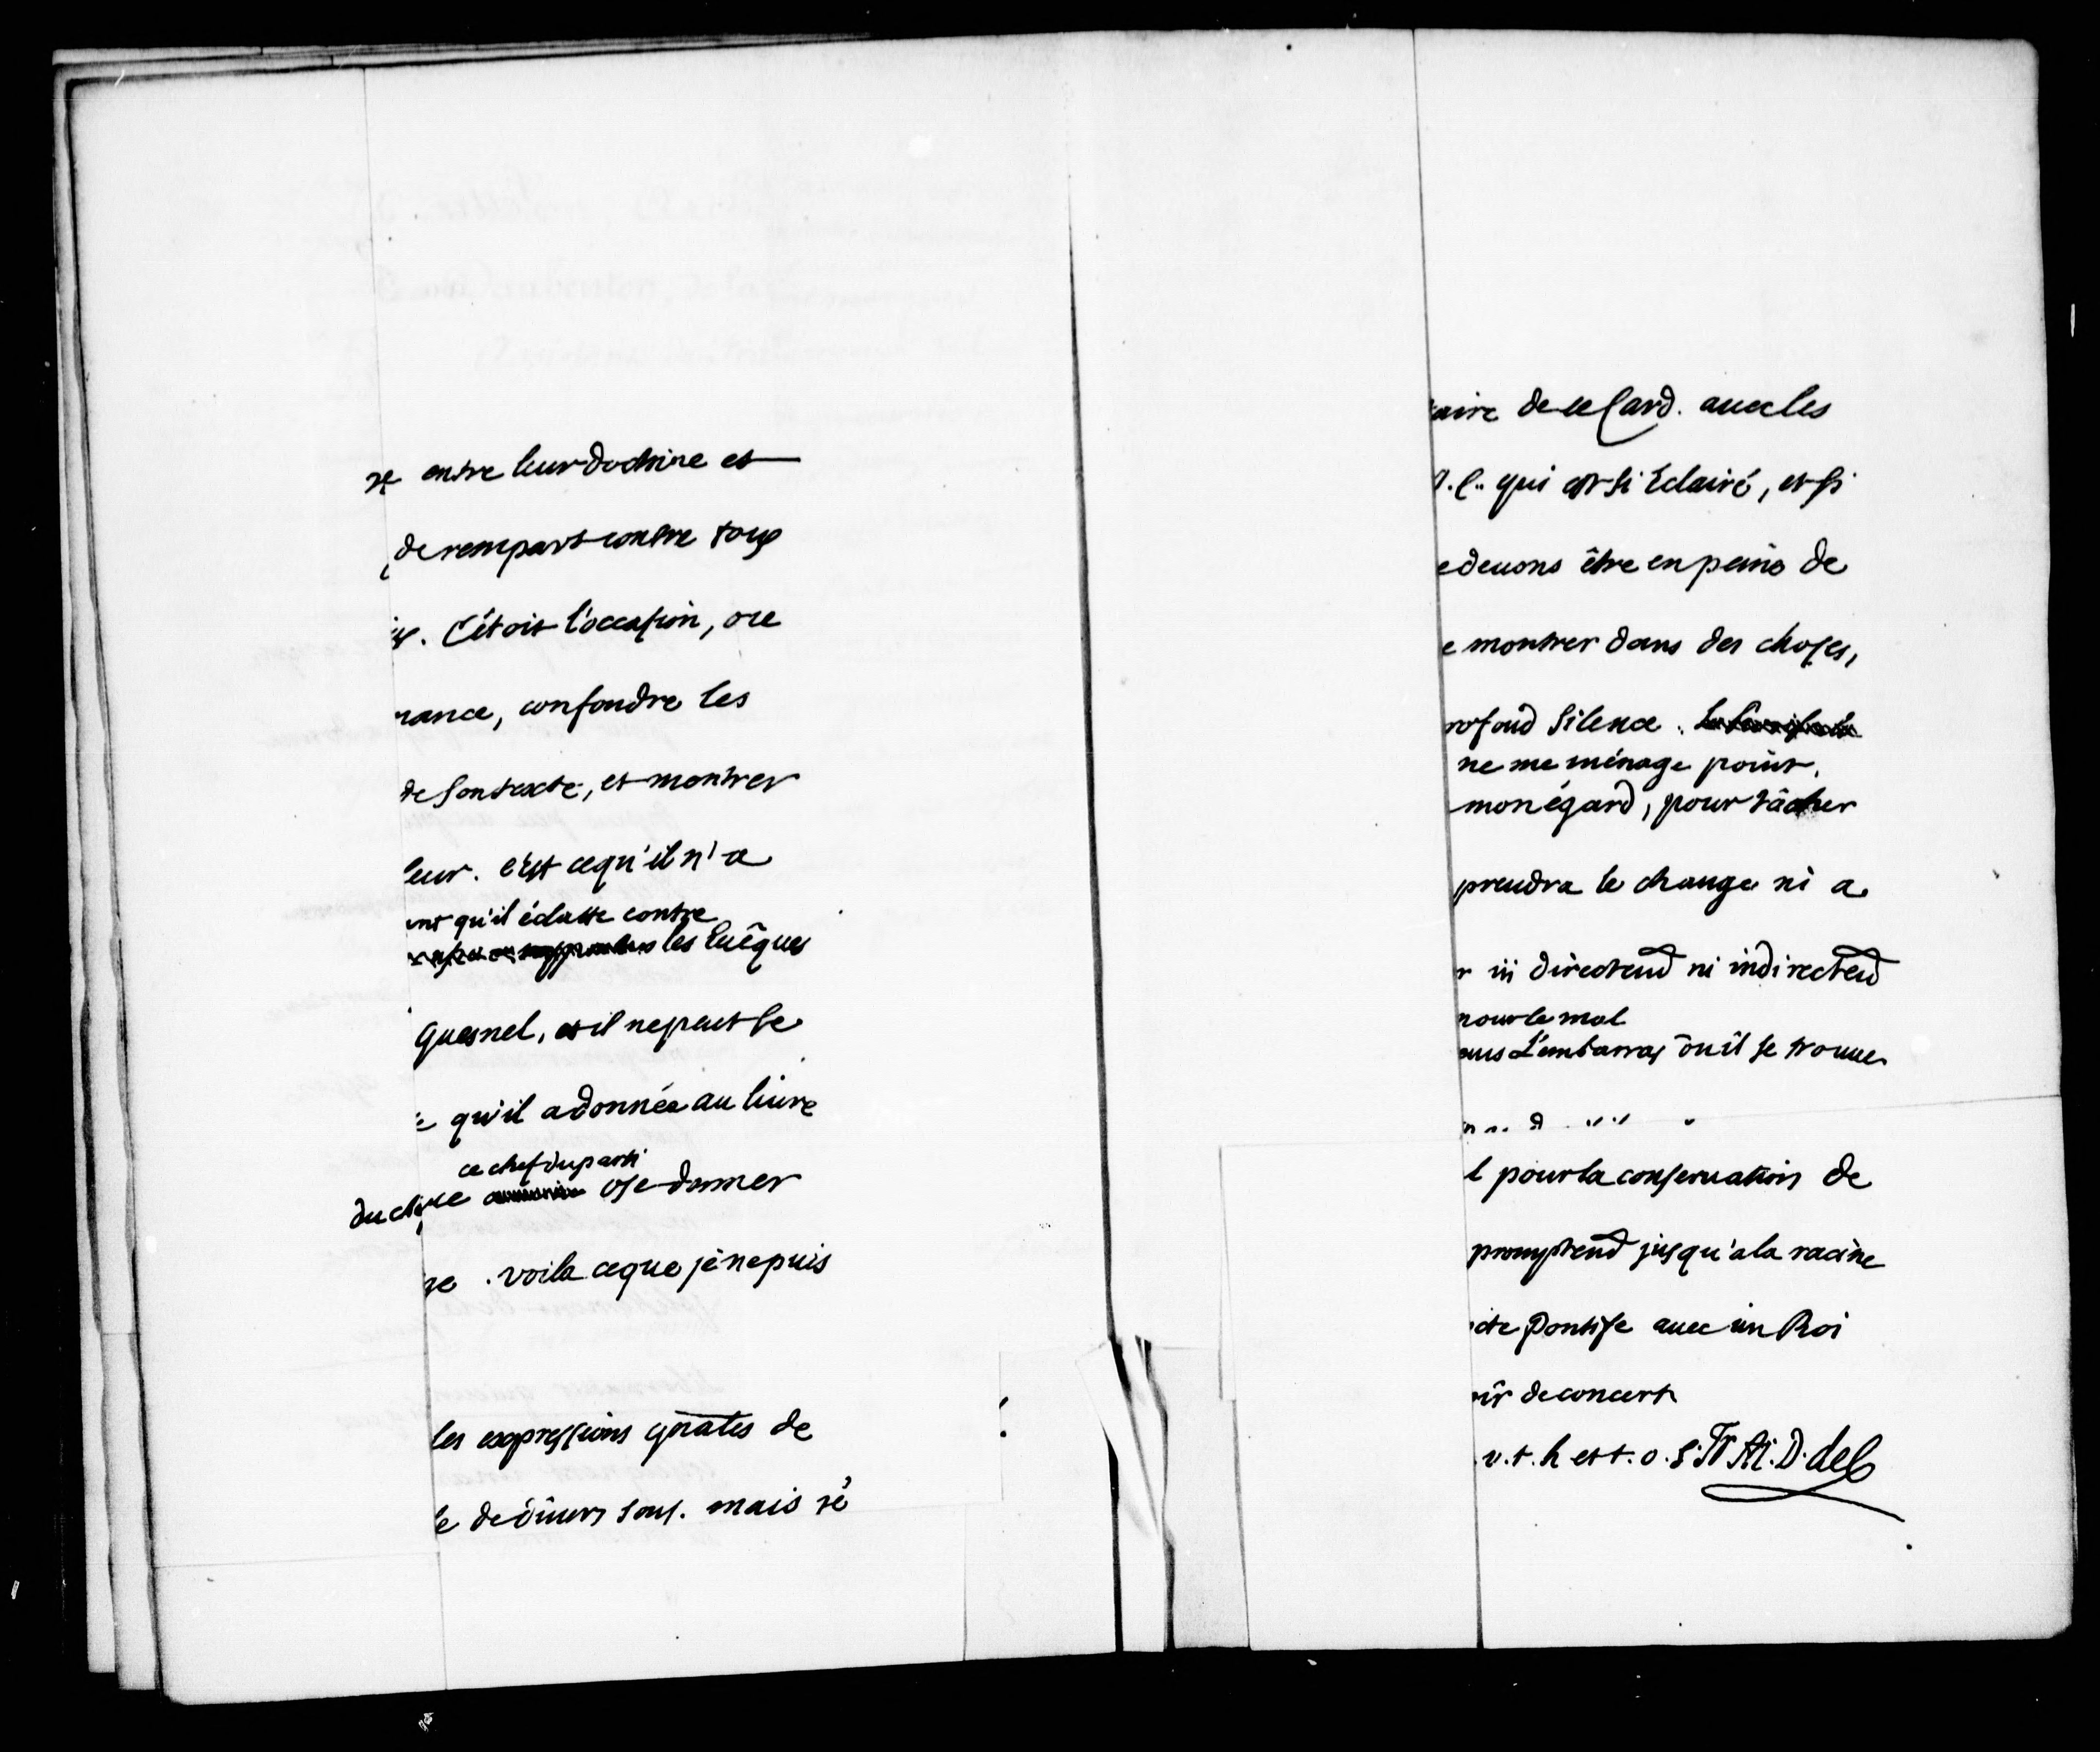 entre leur doctrine et
de rempart contre tous
C'étoit l'occasion, ou
rance, confondre les
de son texte, et montrer
leur. c'est ce qu'il n'a
ant qu'il éclatte contre
les Evêques
Quesnel, et il ne peut se
qu'il a donnée au livre
ce chef du parti
ose donner
voila ce que je ne puis
les expressions gñales de
de divers sens. mais
aire de ce Card. avec les
qui est si éclairé, et si
e devons être en peine de
e montrer dans des choses,
rofond silence.
ne me ménage point,
mon égard, pour tâcher
prendra le change ni a
r ni directemt ni indirectemt
pour le mal
ans l'embarras où il se trouve
l pour la conservation de
promptemt jusqu'a la racine
cte Pontife avec un Roi
ir de concert
v. t. h et t. o. s. Fr. Ar. D. de C